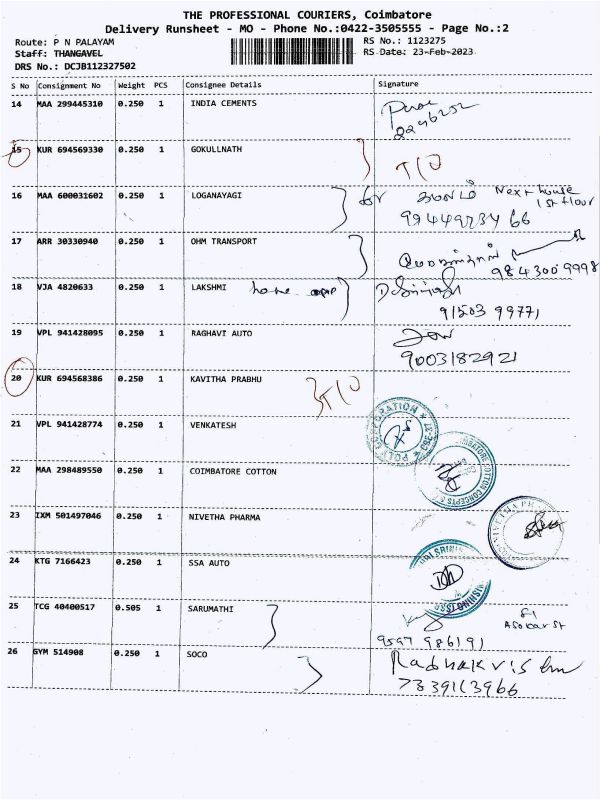 THE PROFESSIONAL COURIERS, Coimbatore
Delivery Runsheet - MO - Phone No.:0422-3505555 - Page No.:2
Route: P N PALAYAM
Staff: THANGAVEL
DRS No.: DCJB112327502
RS No.: 1123275
RS Date: 23-Feb-2023
S No Consignment No Weight PCS Consignee Details Signature
14 MAA 299445310 0.250 1 INDIA CEMENTS
15 KUR 694569330 0.250 1 GOKULLNATH
16 MAA 600031602 0.250 1 LOGANAYAGI for Next house
1st floor
17 ARR 30330940 0.250 1 OHM TRANSPORT
984300 9998
18 VJA 4820633 0.250 1 LAKSHMI home opp
91503 99771
19 VPL 941428095 0.250 1 RAGHAVI AUTO
9003182921
20 KUR 694568386 0.250 1 KAVITHA PRABHU
21 VPL 941428774 0.250 1 VENKATESH
22 MAA 298489550 0.250 1 COIMBATORE COTTON
23 IXM 501497046 0.250 1 NIVETHA PHARMA
24 KTG 7166423 0.250 1 SSA AUTO
25 TCG 40400517 0.505 1 SARUMATHI
9597 986191
26 GYM 514908 0.250 1 SOCO
7339113966